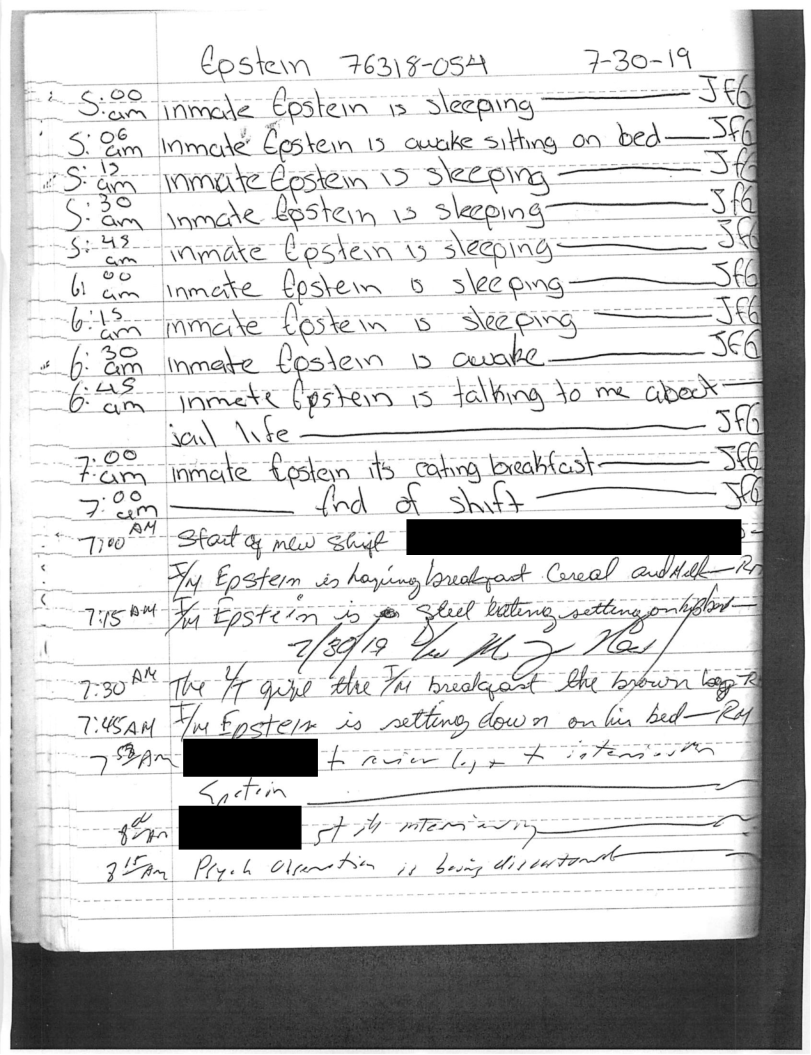 Epstein 76318-054 7-30-19
5:00 am inmate Epstein is sleeping JfG
5:06 am inmate Epstein is awake sitting on bed JfG
5:15 am inmate Epstein is sleeping JfG
5:30 am inmate Epstein is sleeping JfG
5:45 am inmate Epstein is sleeping JfG
6:00 am inmate Epstein is sleeping JfG
6:15 am inmate Epstein is sleeping JfG
6:30 am inmate Epstein is awake JfG
6:45 am inmate Epstein is talking to me about
jail life JfG
7:00 am inmate Epstein its eating breakfast JfG
7:00 am End of shift JfG
7:00 AM Start of new shift
I/M Epstein is having breakfast Cereal and Milk RM
7:15 AM I/M Epstein is steel eating setting on his bed
7/30/19
7:30 AM The I/M breakfast the brown bag RM
7:45 AM I/M Epstein is setting down on his bed RM
AM to review log + to interview
Epstein
AM interviewing
8 15 AM Psych Observation is being